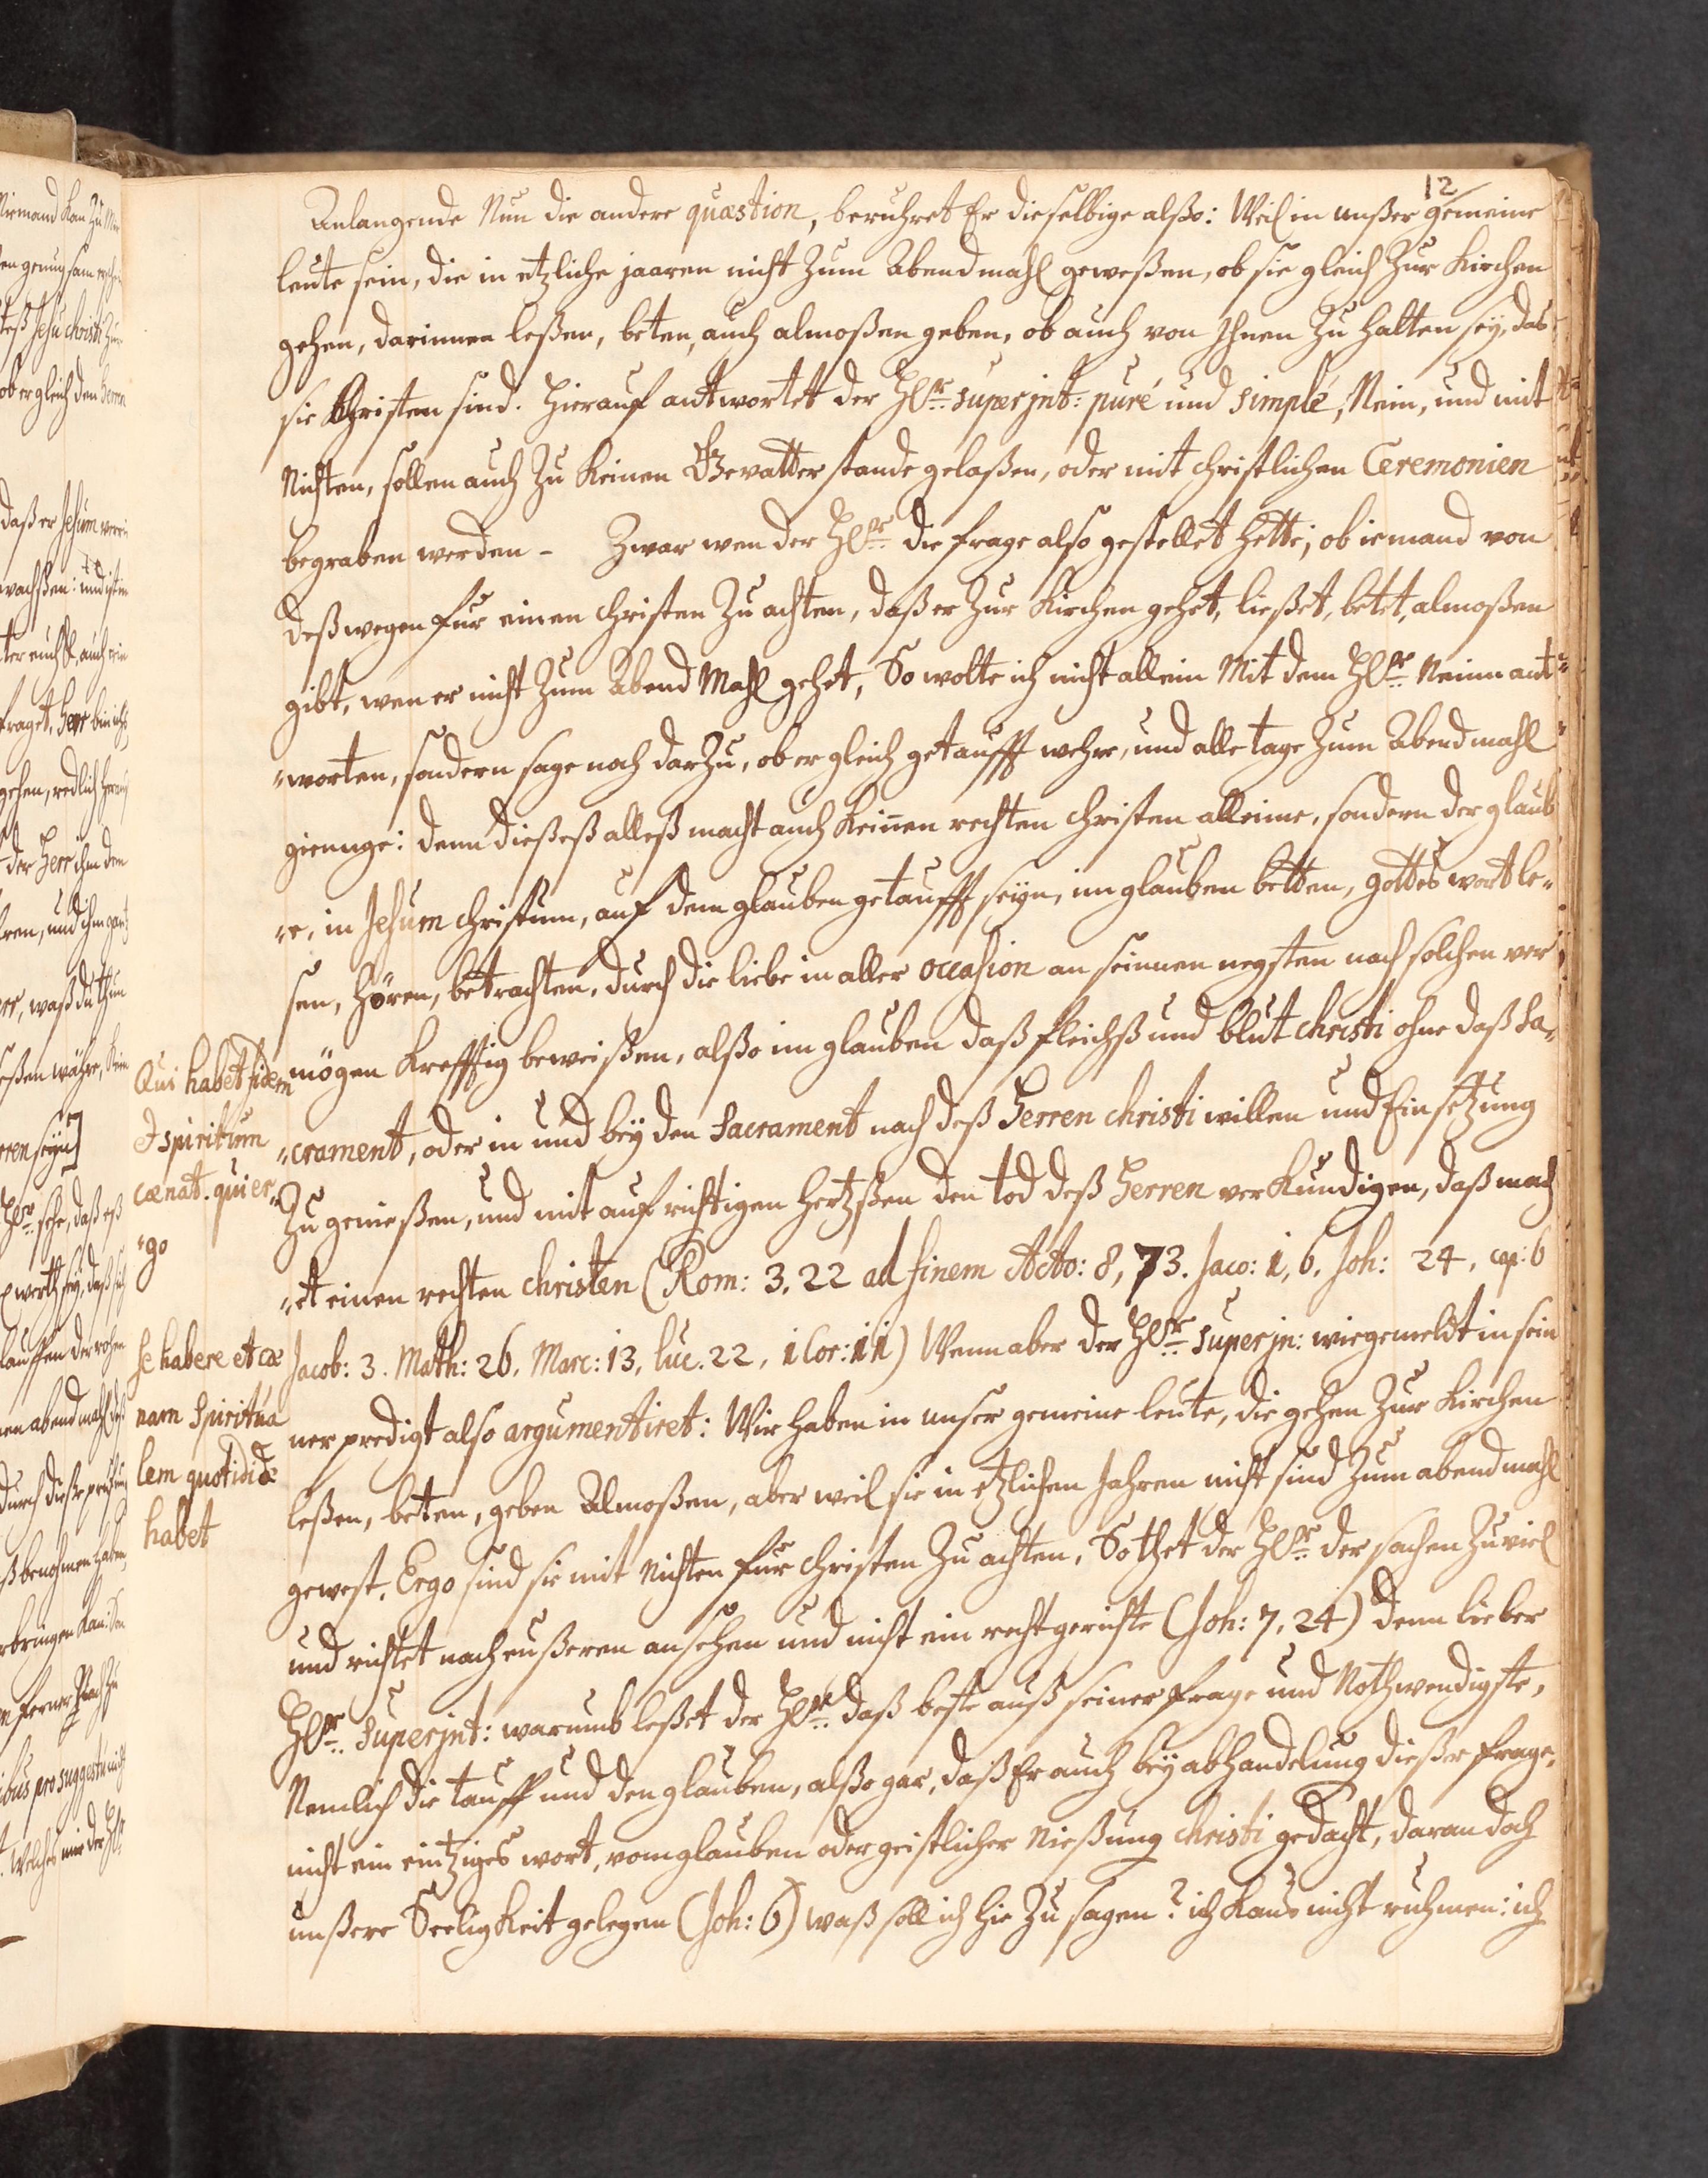 12
Anlangende Nun die andere quæstion, beruhret Er dieselbige alßo: Weil in unßer gemeine
leute sein, die in etzliche jaaren nicht Zum Abendmahl geweßen, ob sie gleich Zur Kirchen
gehen, darinnen leßen, beten, auch almoßen geben, ob auch von Ihnen Zu halten sey, das
sie Christen sind. Hierauf antwortet der HEr: superjnt: puré und simplé, Nein, und mit
Nichten, sollen auch Zu Keinen Gevatter stande gelaßen, oder mit christlichen Ceremonien
begraben werden - Zwar wen der HEr: die frage also gestellet hette, ob iemand von
deßwegen fur einen christen Zu achten, daß er Zur Kirchen gehet, ließet, betet, almoßen
gibt, wen er nicht Zum Abend Mahl gehet, So wolte ich nicht allein Mit dem HEr: Neinn ant„
„worten, sondern sage noch darZu, ob er gleich getaufft wehre, und alle tage Zum Abendmahl
giennge: denn dießeß alleß macht auch Keinen rechten christen alleine, sondern der glaub
„e, in Jesum christum, auf dem glauben getaufft seyn, im glauben betten, gottes wort le„
sen, hören, betrachten, durch die liebe in aller occasion an seinnen negsten nach solchen ver
mögen Krefftig beweißen, alßo im glauben daß fleichß und blut christi ohne daß Sa„
„crament, oder in und bey den Sacrament nach deß Herren christi willen und Einsetzung
Zu genießen, und mit aufrichtigen hertzßen den tod deß Herren verKundigen, daß mach
„et einen rechten christen (Rom: 3, 22 ad finem Acto: 8, 73. Jaco: 1, 6. Joh: 24, cap: 6
Jacob: 3. Math: 26, Marc: 13, luc. 22, 1 Cor: 11) Wenn aber der HEr: superjn: wie gemeldt in sein
ner predigt also argumentiret: Wir haben in unser gemeine leute, die gehen Zur Kirchen
leßen, beten, geben Almoßen, aber weil sie in etzlichen Jahren nicht sind Zum abendmahl
gewest. Ergo sind sie mit nichten fur christen Zu achten, So thet der HEr: der sachen Zu viel
und richtet nach eußeren ansehen und nicht ein recht gerichte (Joh: 7, 24) denn lieber
HEr: superjnt: warumb leßet der HEr: daß beste auß seiner frage und Nothwendigste,
Nemlich die tauff und den glauben, alßo gar, daß Er auch bey abhandelung dießer frage,
nicht ein eintziges wort, vom glauben oder geistlicher nießung christi gedacht, daran doch
unßere SeeligKeit gelegen (Joh: 6) waß soll ich hie Zu sagen? ich Kans nicht ruhmen: ich
Qui habet fidem
et spiritum
cænat. qui er„
„go
se habere et cæ
nam Spiritua
lem quotidie
habet